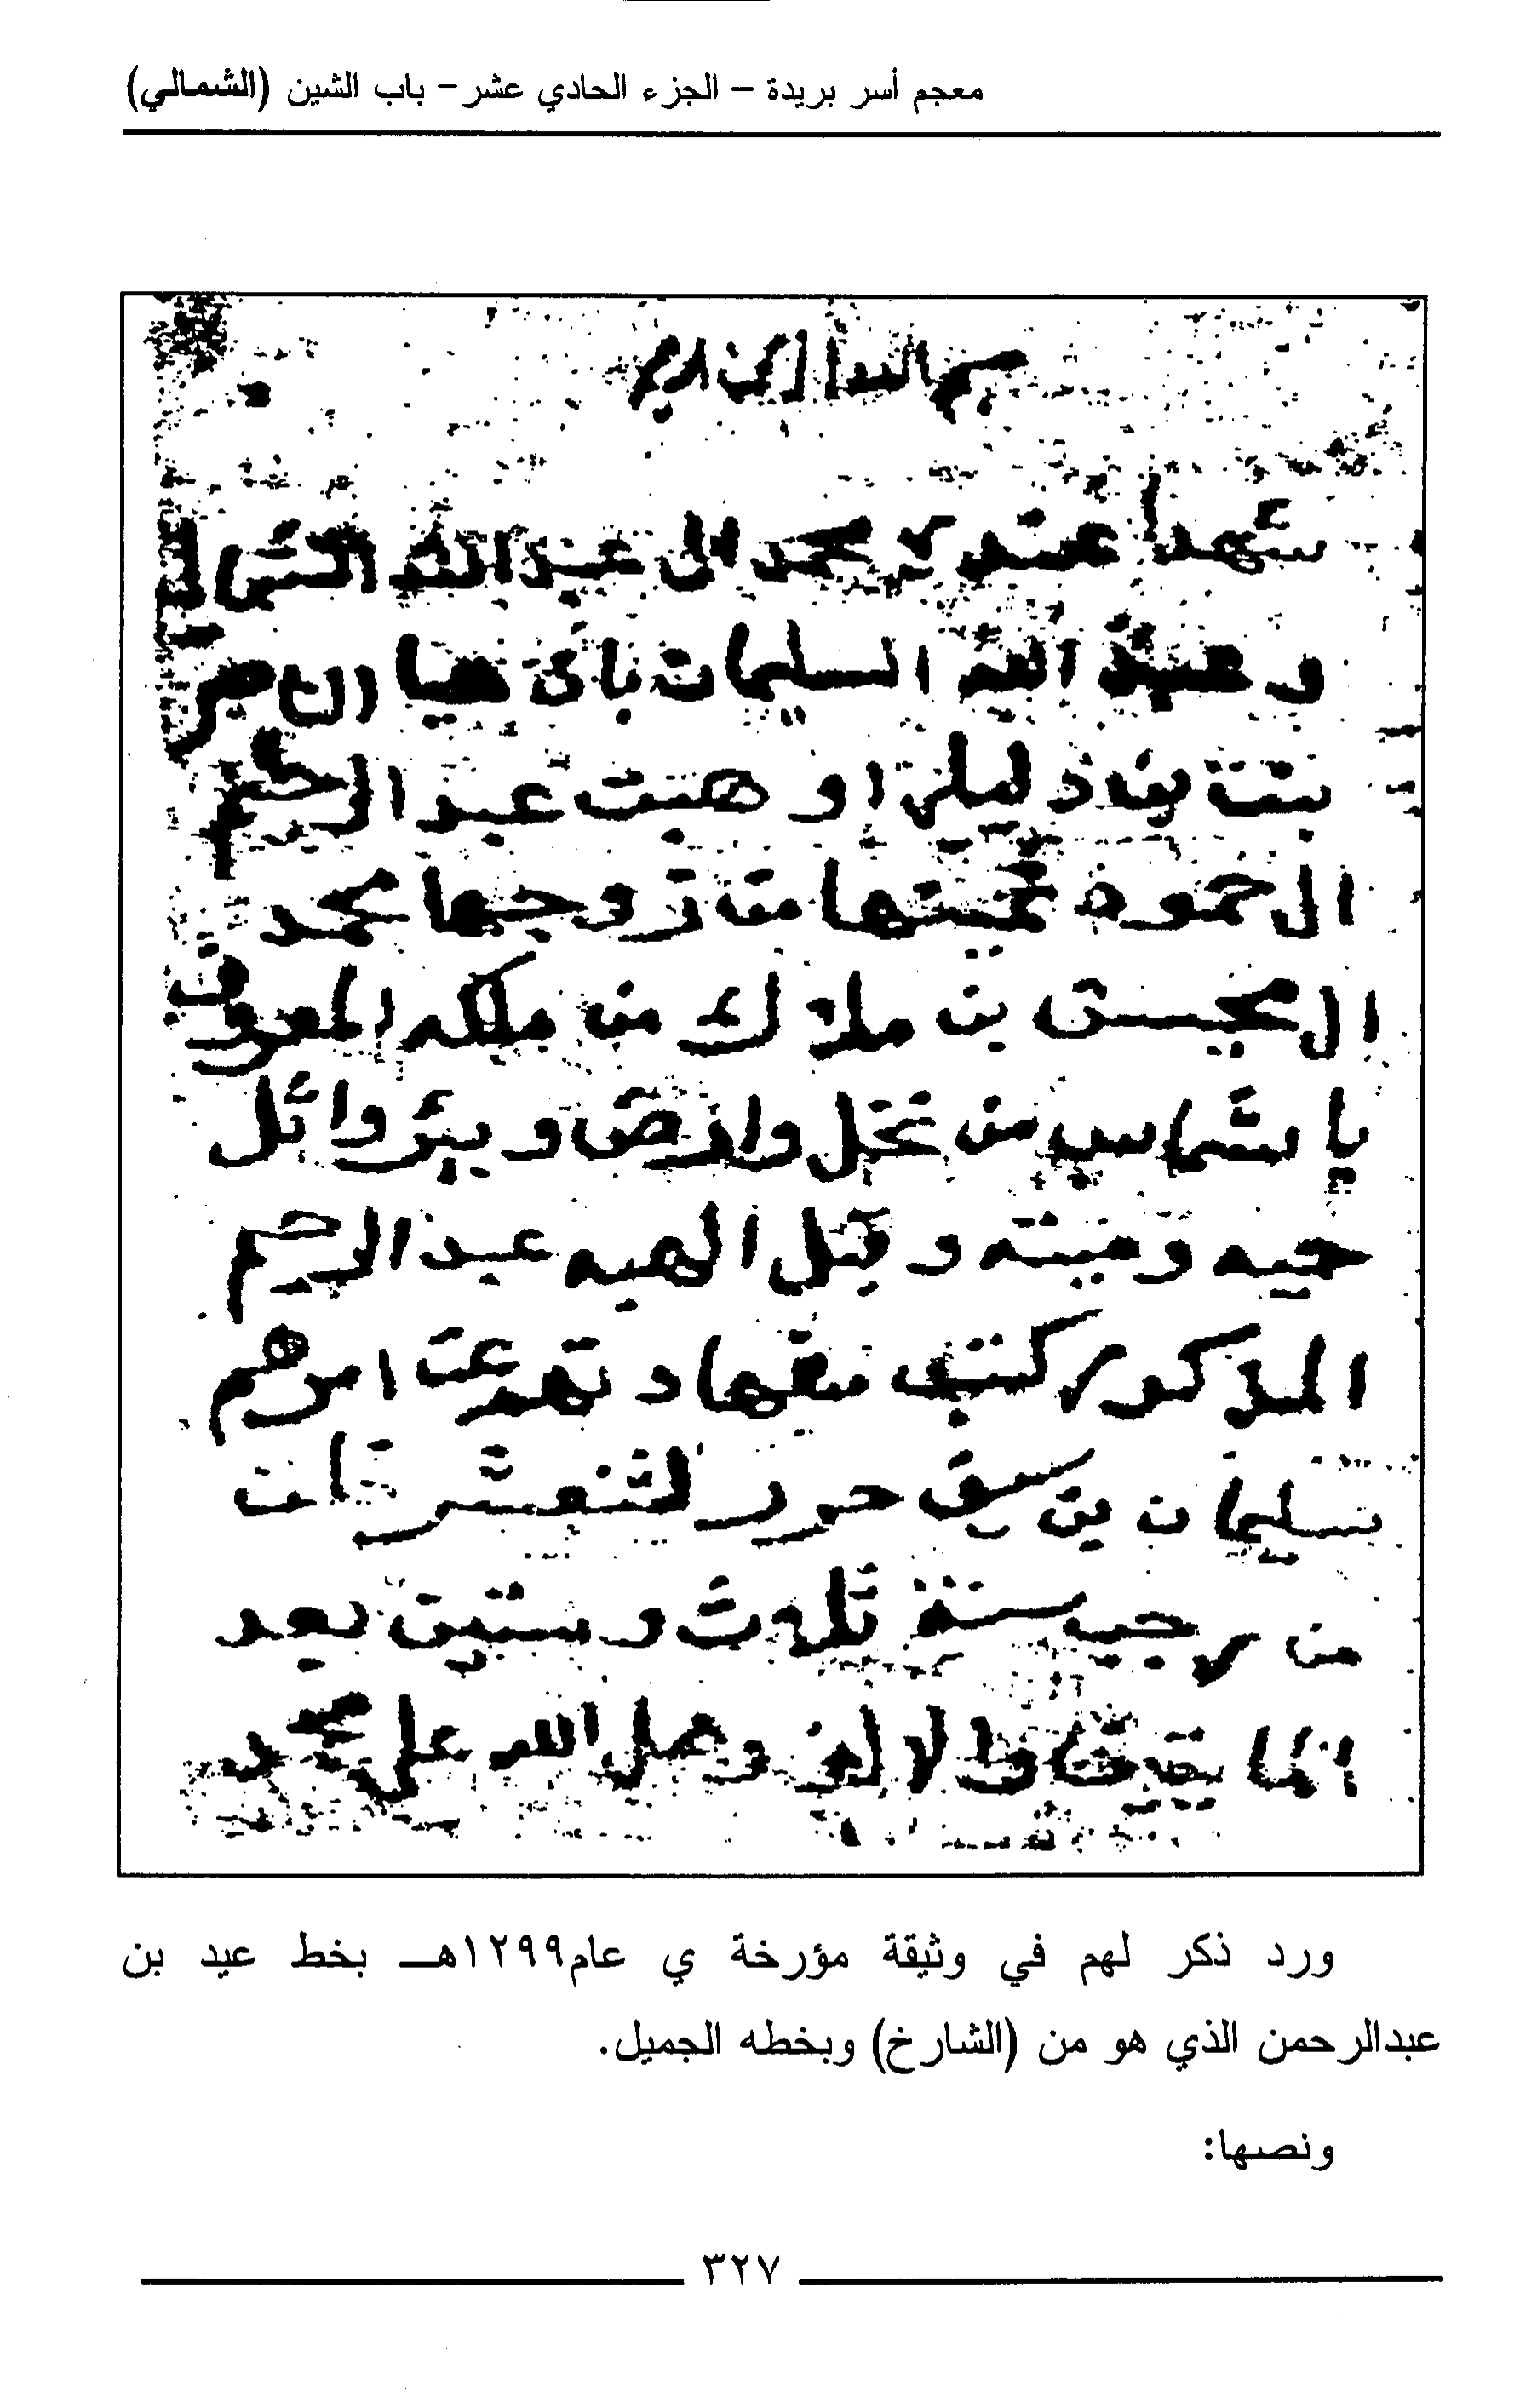 معجم أسر بريدة – الجزء الحادي عشر – باب الشين (الشمالي)
شهدا عندي محمد ال عبد الله الشمالي
وعبد الله السليمان بان هيا
بنت او هبت عبد الرحيم
ال حمود من زوجها محمد
ال محيسن من ملكه المعروف
با شماس من نخل وارض وبير واثل
حيه وميته و قبل الهبه عبد الرحيم
المذكور كتب شهادتهم عن امرهم
سليمان بن سيف حرر لثنعشر خات
من رجب سنة ثلاث وستين بعد
المايتين والالف وصلى الله على محمد
ورد ذكر لهم في وثيقة مؤرخة ي عام١٢٩٩هـ بخط عيد بن
عبدالرحمن الذي هو من (الشارخ) وبخطه الجميل.
ونصها:
٣٢٧